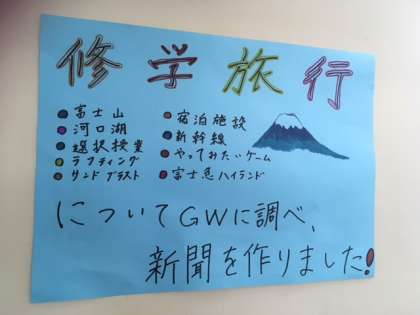 修学旅行
●富士山
●河口湖
●選択授業
●ラフティング
●サンドブラスト
●宿泊施設
●新幹線
●やってみたいゲーム
●富士急ハイランド
についてGWに調べ、
新聞を作りました!